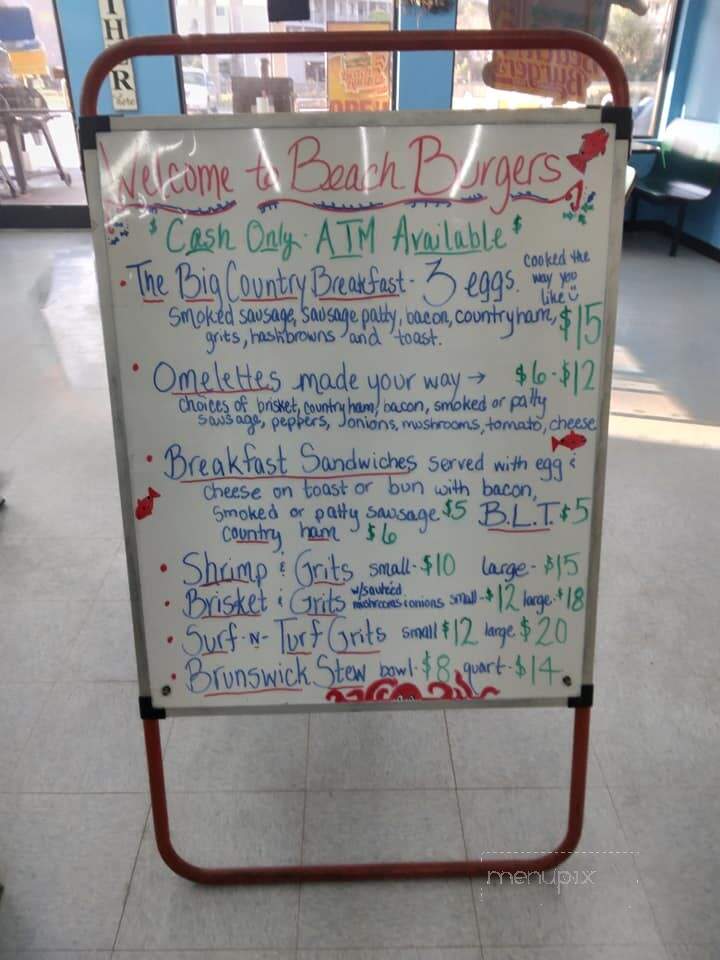 THER
here
Burgers
Welcome to Beach Burgers
$ Cash Only · ATM Available $
• The Big Country Breakfast - 3 eggs. cooked the way you like
smoked sausage, sausage patty, bacon, country ham, $15
grits, hashbrowns and toast.
• Omelettes made your way → $6 - $12
choices of brisket, country ham, bacon, smoked or patty
sausage, peppers, onions, mushrooms, tomato, cheese
• Breakfast Sandwiches served with egg &
cheese on toast or bun with bacon,
smoked or patty sausage $5 B.L.T. $5
country ham $6
• Shrimp & Grits small - $10 large - $15
• Brisket & Grits w/sauteed mushrooms & onions small - $12 large - $18
• Surf -N- Turf Grits small $12 large $20
• Brunswick Stew bowl - $8 quart - $14
menupix